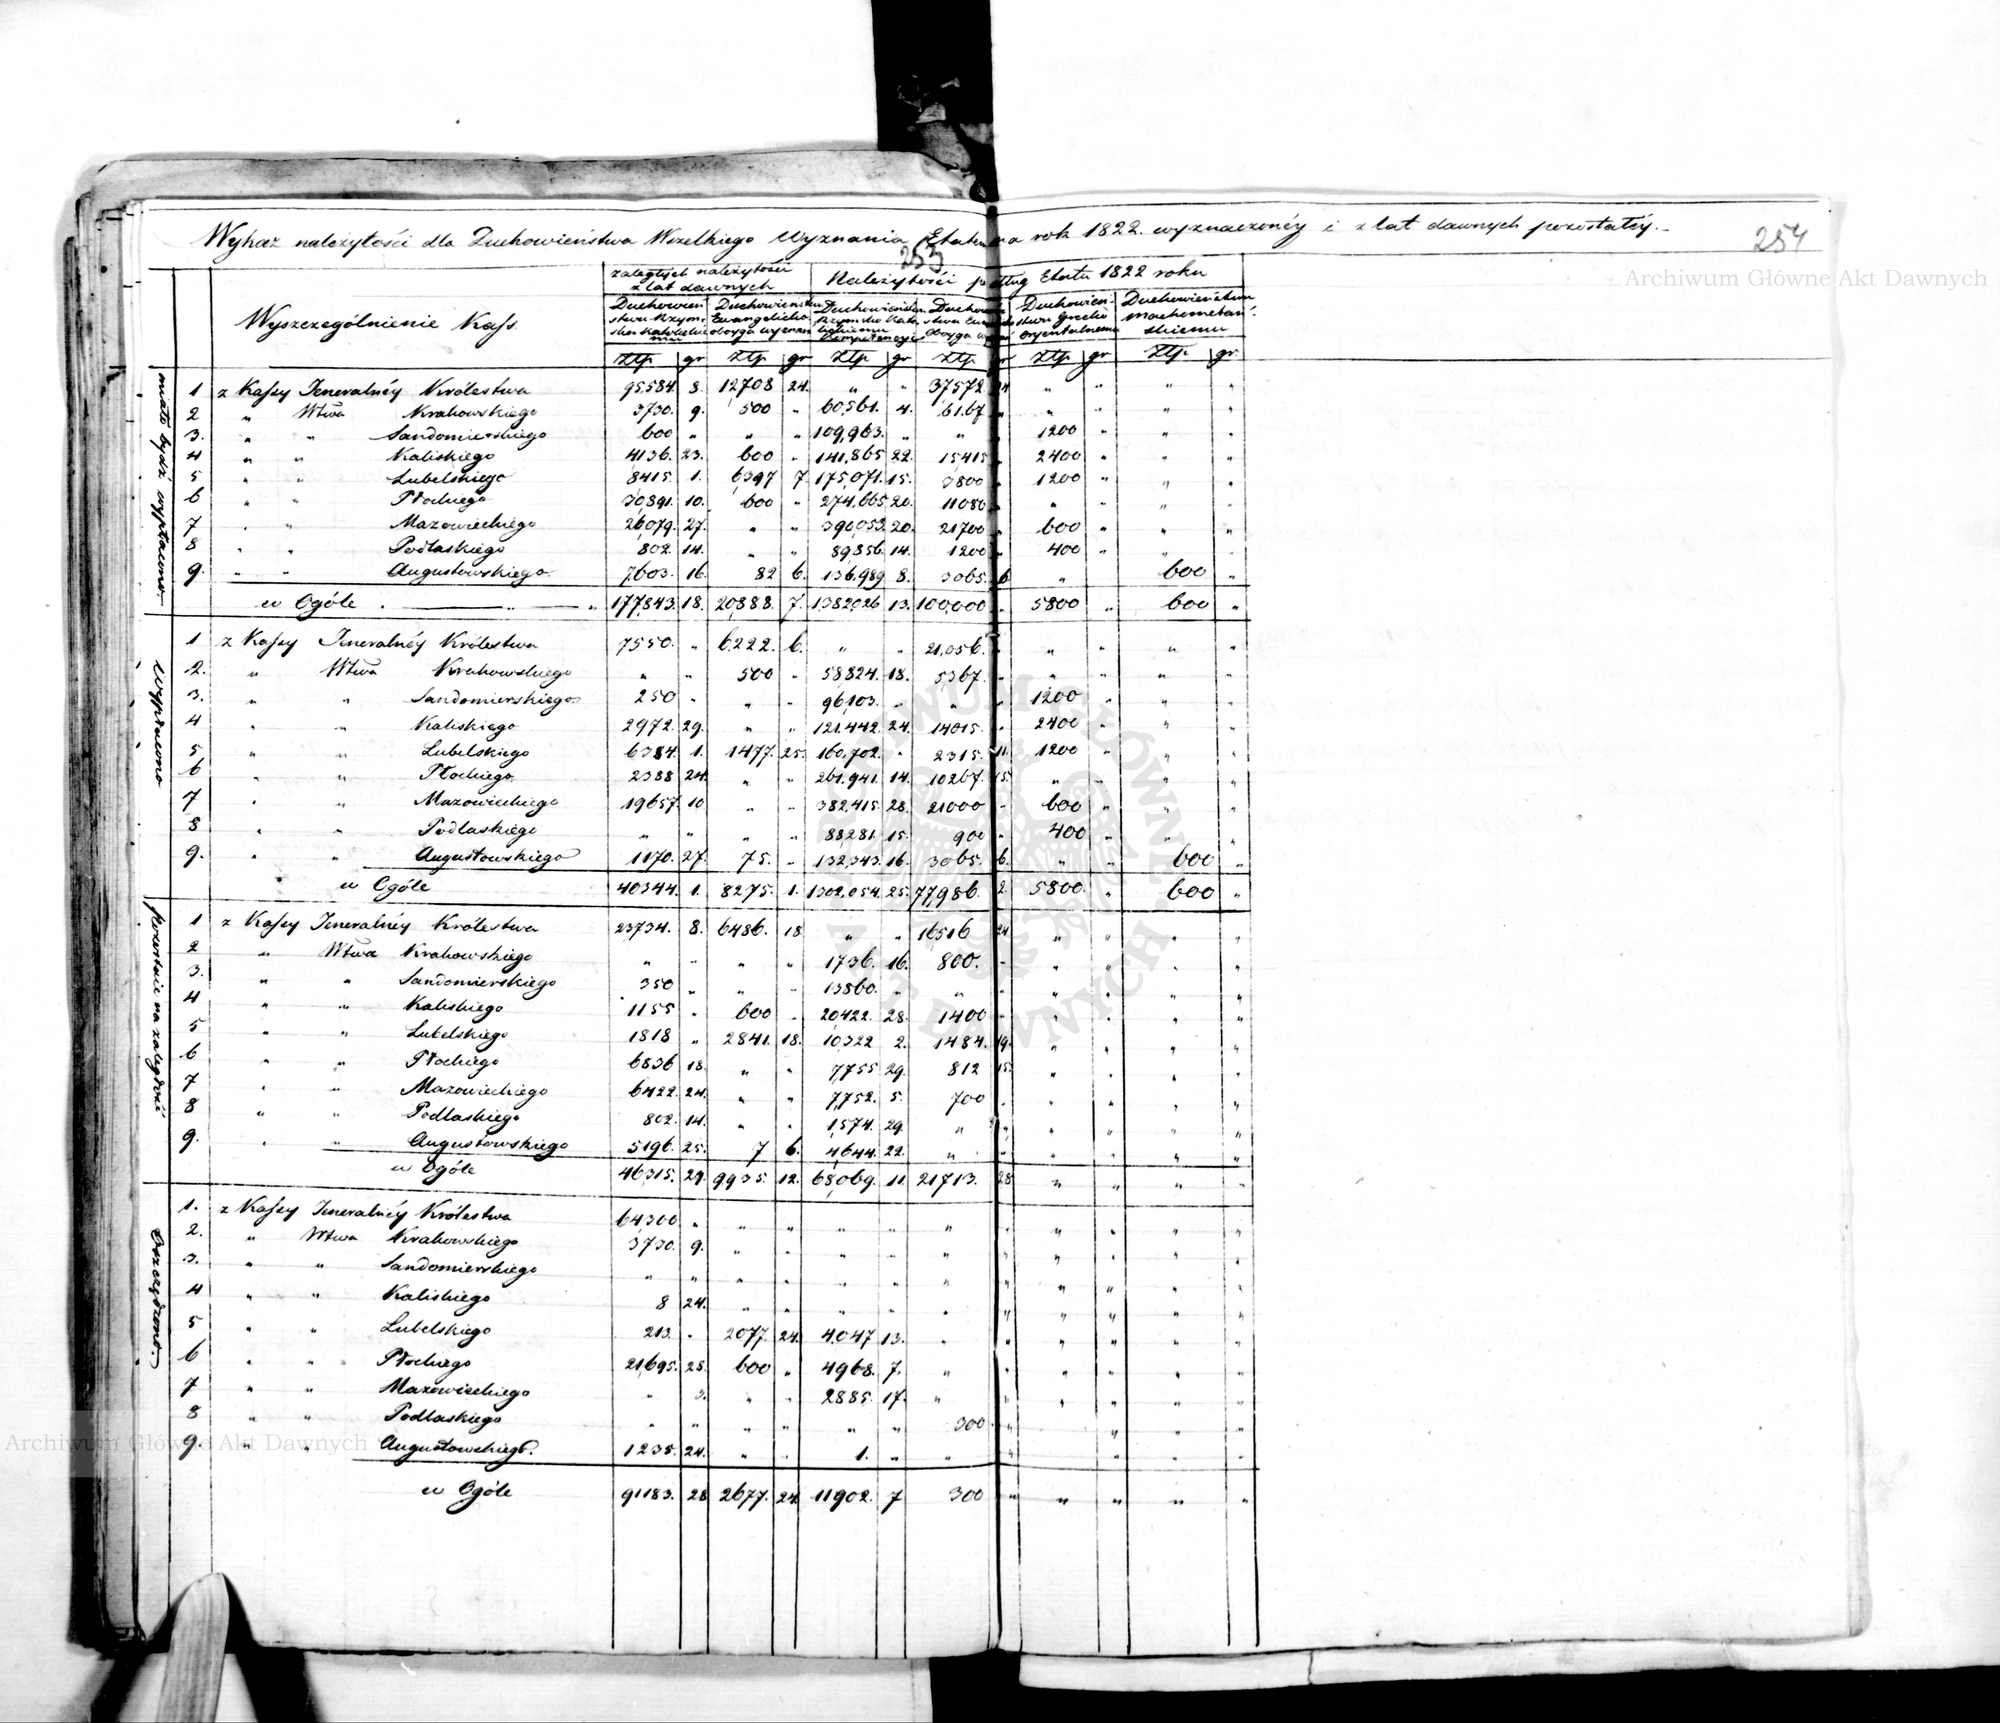 Wykaz należytości dla Duchowieństwa Wszelkiego Wyznania Etatem na rok 1822. wyznaczonéy i z lat dawnych pozostałéy.
253
254
Archiwum Główne Akt Dawnych
Wyszczególnienie Kass.
zaległych należytości z lat dawnych
Należytości podług Etatu 1822 roku
Duchowieństwu Rzymsko Katolickiemu
Duchowieństwu Ewangelicko oboyga wyznań
Duchowieństwu Rzymsko Kato lickiemu Kompetencyi
Duchowieństwu Oboyga
Duchowieństwu Grecko Oryentalnemu
Duchowieństwu Machometańskiemu
Ztp. gr Ztp. gr Ztp. gr Ztp. gr Ztp. gr Ztp. gr.
miało bydź wypłacono.
1 z Kassy Jeneralnéy Królestwa 95584. 8. 12708 24. " " 37572 24 " " " "
2 " Wtwa Krakowskiego 3730. 9. 500 " 60,561. 4. 6167 " " " " "
3. " " Sandomierskiego 600 " " " 109,963. " " " 1200 " " "
4 " " Kaliskiego 4136. 23. 600 " 141,865 22. 15415 " 2400 " " "
5 " " Lubelskiego 8415. 1. 6397 7. 175,071. 15. 3800 " 1200 " " "
6 " " Płockiego 30,891. 10. 600 " 274,665 20. 11080 " " " " "
7 " " Mazowieckiego 26,079. 27. " " 390,053. 20. 21700 " 600 " " "
8 " " Podlaskiego 802. 14. " " 89,856. 14. 1200 " 400 " " "
9. " " Augustowskiego 7603. 16. 82 6. 136,989 8. 3065. 6 " " 600 "
w Ogóle 177,843. 18. 20,888. 7. 1,382,026 13. 100,000 " 5800 " 600 "
Wypłacono
1 z Kassy Jeneralnéy Królestwa 7550. " 6222. 6. " " 21,056. " " " " "
2. " Wtwa Krakowskiego " " 500 " 58824. 18. 5367. " " " " "
3. " " Sandomierskiego 250 " " " 96,103. " " " 1200 " " "
4 " " Kaliskiego 2972. 29. " " 121,442. 24. 14015. " 2400 " " "
5 " " Lubelskiego 6384. 1. 1477. 25. 160,702. " 2315. 11. 1200 " " "
6 " " Płockiego 2388 24. " " 261,941. 14. 10267. 15. " " " "
7 " " Mazowieckiego 19657. 10 " " 382,415. 28. 21000 " 600 " " "
8 " " Podlaskiego " " " " 88281. 15. 900 " 400 " " "
9. " " Augustowskiego 1170. 27. 75. " 132,343. 16. 3065. 6. " " 600 "
w Ogóle 40344. 1. 8275. 1. 1302,054. 25. 77,986. 2. 5800. " 600 "
pozostaie na zaległość
1 z Kassy Jeneralnéy Królestwa 23734. 8. 6486. 18 " " 16516 24 " " " "
2 " Wtwa Krakowskiego " " " " 1736. 16. 800. " " " " "
3. " " Sandomierskiego 350 " " " 13860. " " " " " " "
4 " " Kaliskiego 1155 " 600 " 20422. 28. 1400 " " " " "
5 " " Lubelskiego 1818 " 2841. 18. 10322 2. 1484. 19. " " " "
6 " " Płockiego 6836 18. " " 7,755 29. 812 15. " " " "
7 " " Mazowieckiego 6422. 24. " " 7,752. 5. 700 " " " " "
8 " " Podlaskiego 802. 14. " " 1,574. 29. " " " " " "
9. " " Augustowskiego 5196. 25. 7 6. 4644. 22. " " " " " "
w Ogóle 46,315. 29. 9935. 12. 68,069. 11. 21713. 28 " " " "
Oszczędzono.
1. z Kassy Jeneralnéy Królestwa 64,300 " " " " " " " " " " "
2. " Wtwa Krakowskiego 3730. 9. " " " " " " " " " "
3. " " Sandomierskiego " " " " " " " " " " " "
4 " " Kaliskiego 8 24. " " " " " " " " " "
5 " " Lubelskiego 213. " 2077. 24. 4,047 13. " " " " " "
6 " " Płockiego 21,695. 28. 600 " 4968. 7. " " " " " "
7 " " Mazowieckiego " 3. " " 2885. 17. " " " " " "
8 " " Podlaskiego " " " " " " 300 " " " " "
9. " " Augustowskiego. 1235. 24. " " 1. " " " " " " "
w Ogóle 91183. 28 2677. 24. 11902. 7 300 " " " " "
Archiwum Główne Akt Dawnych